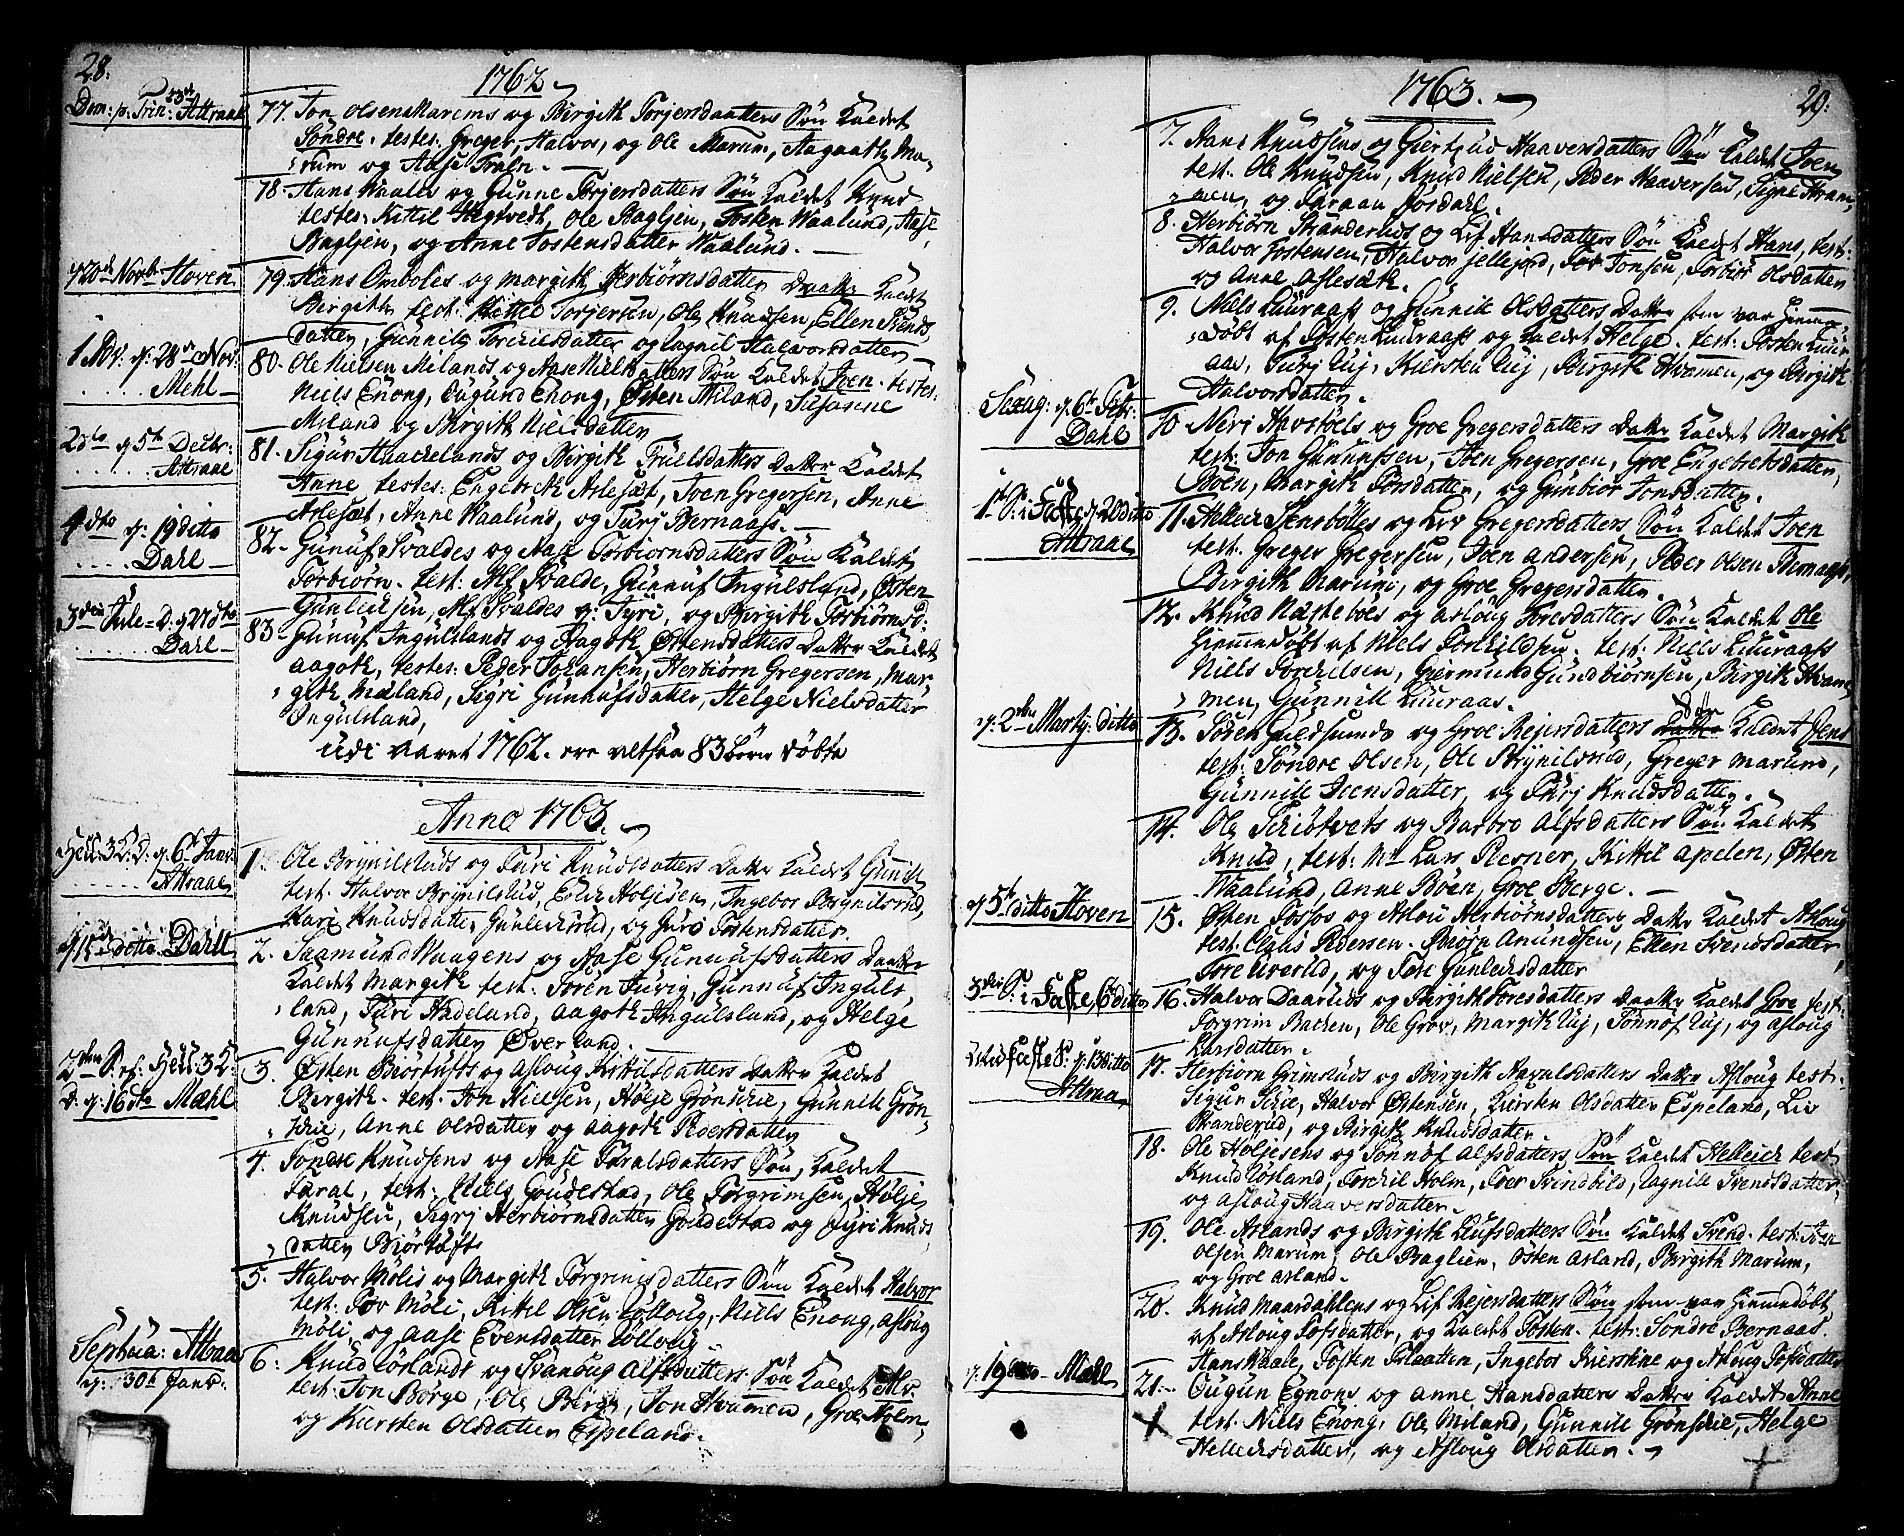 28.
1762
Dom: p. Trin: 23de Attraae
77. Jon Olsens Marems og Birgith Torjersdaatters Søn Kaldet
Søndre. testes: Greger, Halvor, og Ole Marum, Aagaath Ma-
rum og Aase Traen.
78. Hans Waales og Gunne Torjersdatters Søn Kaldet Knud
testes: Kittil Hegtvedt, Ole Bagljen, Tosten Waalund, Aase
Bagljen, og Anne Tostensdatter Waalund.
Hoven
79. Hans Omboles og Margith Herbiørnsdatter Daatter Kaldet
Birgith test: Kittel Torjersen, Ole Knudsen, Ellen Svends
datter, Gunnild Torkildsdatter og Lagnil Halvorsdatter
1. Adv: d. 28de Nov:
Mehl
80. Ole Nielsen Milands og Aase Nielsdatters Søn Kaldet Joen. testes:
Niels Enong, Øugund Enong, Østen Miland, Susanne
Miland og Birgith Nielsdatter
2dto d. 5te Decbr:
Attraae
81. Sigur Haachelands og Birgith Truelsdatters Datter Kaldet
Anne testes: Engebreth Aslesæt, Joen Gregersen, Anne
Aslesæt, Anne Waalund, og Turj Bernaas.
4 dto d. 19 ditto
Dahl
82. Gunuf Svaldes og Aase Torbiørnsdatters Søn Kaldet
Torbiørn. test: Alf Svalde, Gunnuf Ingulsland, Østen
Gunleicksen, Alf Svaldes q: Tyri, og Birgith Torbiørnsd:
3die Jule-D. d. 27 dto
Dahl
83. Gunuf Ingulslands og Aagoth Østensdatters Datter Kaldet
Aagoth, testes: Peder Johansen, Herbiørn Gregersen, Mar-
gith Mæland, Sigri Gunnufsdatter, Helge Nielsdatter
Ingulsland,
udi aaret 1762. ere altsaa 83 Børn døbte
Anno 1763.
Hell: 3 K: D: d. 6t Janv:
Attraae
1. Ole Brynilsruds og Turi Knudsdatters Datter Kaldet Gunild
test: Halvor Brynilsrud, Erich Holjesen, Ingebor Brynilsrud,
Kari Knudsdatter Gunleicksrud, og Guro Tostensdatter.
ditto Dahl
2. Saamund Waagens og Aase Gunnufsdatters Daatter
Kaldet Margith test: Søren Juvig, Gunnuf Inguls,
land, Turi Hadeland, Aagoth Ingulsland, og Helge
Gunnufsdatter Øverland.
2den S. ef: Hell: 3 K:
D: d. 16 dto Mæhl
3. Østen Biørtufts og Asloug Kittilsdatters Datter Kaldet
Birgith. test: Jon Nielsen, Hølje Grønskie, Gunnild Grøn-
skie, Anne Olsdatter og Aagoth Pedersdatter
4. Søndre Knudsens og Aase Taralsdatters Søn, Kaldet
Taral, test: Niels Goudestad, Ole Torgrimsen, Hølje
Knudsen, Sigrj Herbiørnsdatter Goudestad og Gyri Knuds
datter Biørtuft
5. Halvor Mølis og Margith Torgrimsdatters Søn Kaldet Halvor
test: Tov Møli, Kittel Olsen Lølloug, Niels Enong, Asloug
Møli, og Aase Evensdatter Lølloug
Septua: Attraae
d. 30t Janv:
6. Knud Lørlands og Svanaug Alfsdatters Søn Kaldet Alv.
test: Jon Borge, Ole Børge, Jon Hvamen, Groe Holm,
og Kiersten Olsdatter Espeland.
1763.
29.
7. Hans Knudsens og Giertrud Haaversdatters Søn Kaldet Joen,
test: Ole Knudsen, Knud Nielsen, Peder Haaversen, Signe Hvam,
men, og Taraan Jøsdahl.
8. Herbiørn Stranderuds og Lif Hansdatters Søn Kaldet Hans, test:
Halvor Tostensen, Halvor Jellejord, Tov Tonsen, Torbior Olsdatter
og Anne Aslesæth.
9. Niels Luuraas og Gunnild Olsdatters Datter som var hiemme
døbt af Tosten Luuraas og Kaldet Helge. test: Tosten Luur
aas, Turj Luj, Kiersten Luj, Birgith Hvamen, og Birgith
Halvorsdatter.
Sexag: d. 6t Febr:
Dahl
10. Neri Havstøels og Groe Gregersdatters Datter Kaldet Margith
test: Jon Gunnufsen, Joen Gregersen, Groe Engebretsdatter,
Bøen, Margith Torsdatter, og Gunbior Jonsdatter.
1te S: i Faste d. 20 ditto
Attraae
11. Helleich Stensbølles og Liv Gregersdatters Søn Kaldet Joen
test: Greger Gregersen, Joen Andersen, Peder Olsen Bernaas,
Birgith Marum, og Groe Gregersdatter.
12. Knud Næsteboes og Asloug Toresdatters Søn Kaldet Ole
hiemmedøbt af Niels Torkildsen. test: Niels Luuraas
Niels Torkilsen, Giermund Gundbiørnsen, Birgith Hvam,
men, Gunnild Luuraas.
d. 2den Marty: ditto
13. Søren Guldsunds og Groe Rejersdatters Datter Søn Kaldet Jens
test: Søndre Olsen, Ole Brynilsrud, Greger Marum,
Gunnild Joensdatter, og Turj Knudsdatter.
14. Ole Skiøtvets og Barbro Alfsdatters Søn Kaldet
Knud, test: Mr Lars Resner, Kittil Apelen, Østen
Waalund, Anne Bøen, Groe Berge.
d. 5t ditto Hoven
15. Østen Forsos og Aslou Herbiørnsdatters Datter Kaldet Asloug
test: Claus Pedersen. Biørn Amundsen, Ellen Svendsdatter
Tore Uverud, og Tore Gunleicksdatter
3die S: i Faste, 6 ditto
16. Halvor Daaruds og Birgith Toresdatters Daatter Kaldet Groe test:
Torgrim Bachen, Ole Grov, Margith Luj, Tonnof Luj, og Asloug
Larsdatter.
Midfaste S: d. 13 ditto
Attraae
17. Herbiørn Grimsruds og Birgith Saxulsdatters Datter Asloug test.
Sigur Skie, Halvor Østensen, Kiersten Olsdatter Espeland, Liv
Stranderud, og Birgith Knudsdatter.
18. Ole Høljesens og Tonnof Alfsdatters Søn Kaldet Helleich test
Knud Lørland, Torkil Holm, Tver Svindbild, Lagnild Svensdatter
og Asloug Haaversdatter.
19. Ole Aslands og Birgith Lufsdatters Søn Kaldet Svend. test: Joen
Olsen Marum, Ole Baglien, Østen Asland, Birgith Marum,
og Groe Asland.
20. Knud Maardahlens og Lif Rejersdatters Søn som var hiemmedøbt
af Asloug Tofsdatter, og Kaldet Tosten. test: Søndre Bernaas.
Hans Waale, Tosten Flaatten, Ingebor Kierstine og Asloug Tofsdatter
d. 19 ditto Mæhl
21. Øugun Egnons og Anne Hansdatters Datter Kaldet Anne
test: Niels Enong, Ole Miland, Gunnild Grønskie, Helge
Helleicksdatter, og Asloug Olsdatter.